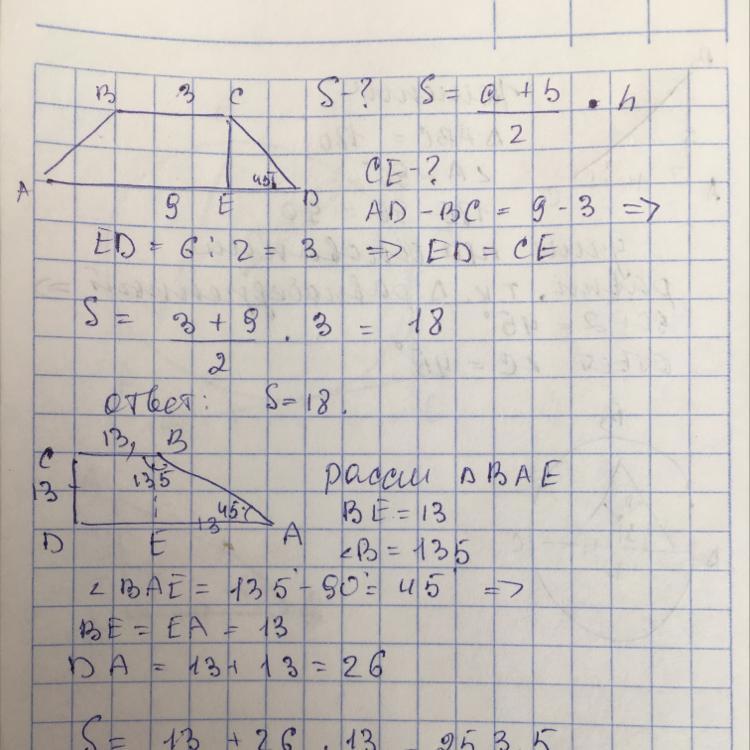 B 3 C S-? S = a + b / 2 · h
A 9 E D 45°
CE-?
AD - BC = 9 - 3 =>
ED = 6 : 2 = 3 => ED = CE
S = 3 + 9 / 2 · 3 = 18
ответ: S = 18.
C 13, B
13 135 45°
D E 13 A
рассм ΔBAE
BE = 13
∠B = 135
∠BAE = 135° - 90° = 45° =>
BE = EA = 13
DA = 13 + 13 = 26
S = 13 + 26 · 13 = 253,5